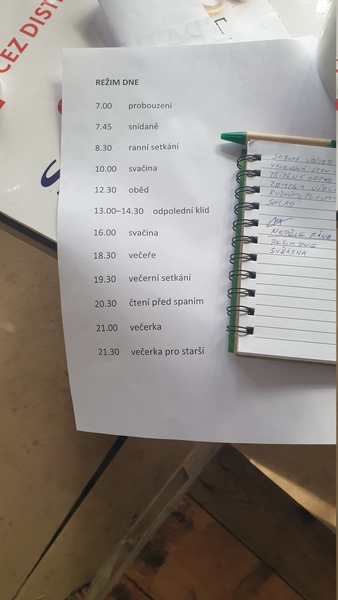 REŽIM DNE
7.00 probouzení
7.45 snídaně
8.30 ranní setkání
10.00 svačina
12.30 oběd
13.00–14.30 odpolední klid
16.00 svačina
18.30 večeře
19.30 večerní setkání
20.30 čtení před spaním
21.00 večerka
21.30 večerka pro starší
ČEZ DIST
SKLAD
NEDĚLE RÁNO
REŽIM DNE
SUŠÁRNA